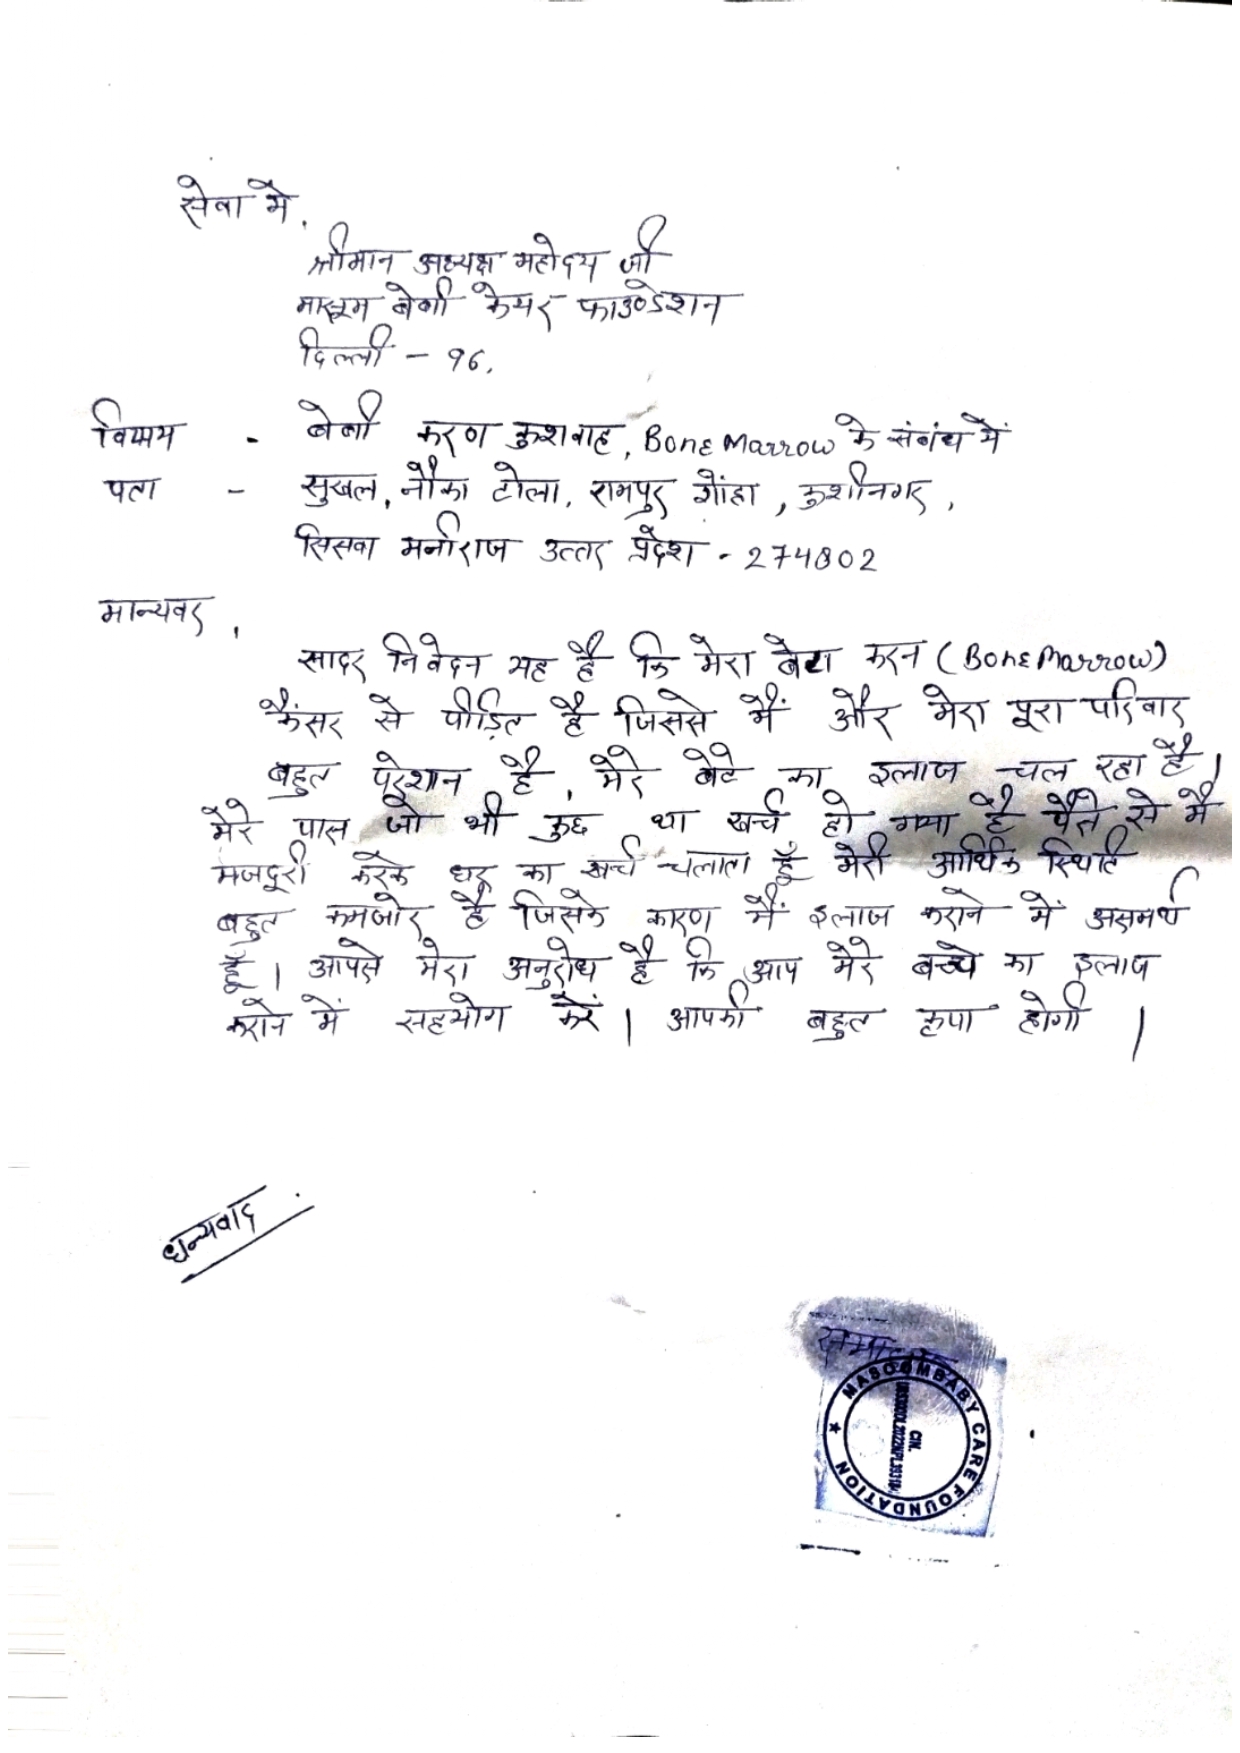 सेवा में,
श्रीमान अध्यक्ष महोदय जी
मासूम बेबी केयर फाउण्डेशन
दिल्ली - 96.
विषय - बेबी करण कुशवाह, Bone Marrow के संबंध में
पता - सुखल, नौका टोला, रामपुर गोंहा, कुशीनगर,
सिसवा मनीराज उत्तर प्रदेश - 274802
मान्यवर,
सादर निवेदन यह है कि मेरा बेटा करन (Bone Marrow)
कैंसर से पीड़ित है जिससे मैं और मेरा पूरा परिवार
बहुत परेशान है, मेरे बेटे का इलाज चल रहा है।
मेरे पास जो भी कुछ था खर्च हो गया है पैसे से मै
मजदूरी करके घर का खर्च चलाता हूँ मेरी आर्थिक स्थिति
बहुत कमजोर है जिसके कारण मैं इलाज कराने में असमर्थ
हूँ। आपसे मेरा अनुरोध है कि आप मेरे बच्चे का इलाज
कराने में सहयोग करें। आपकी बहुत कृपा होगी।
धन्यवाद
MASOOMBABY CARE FOUNDATION
CIN.